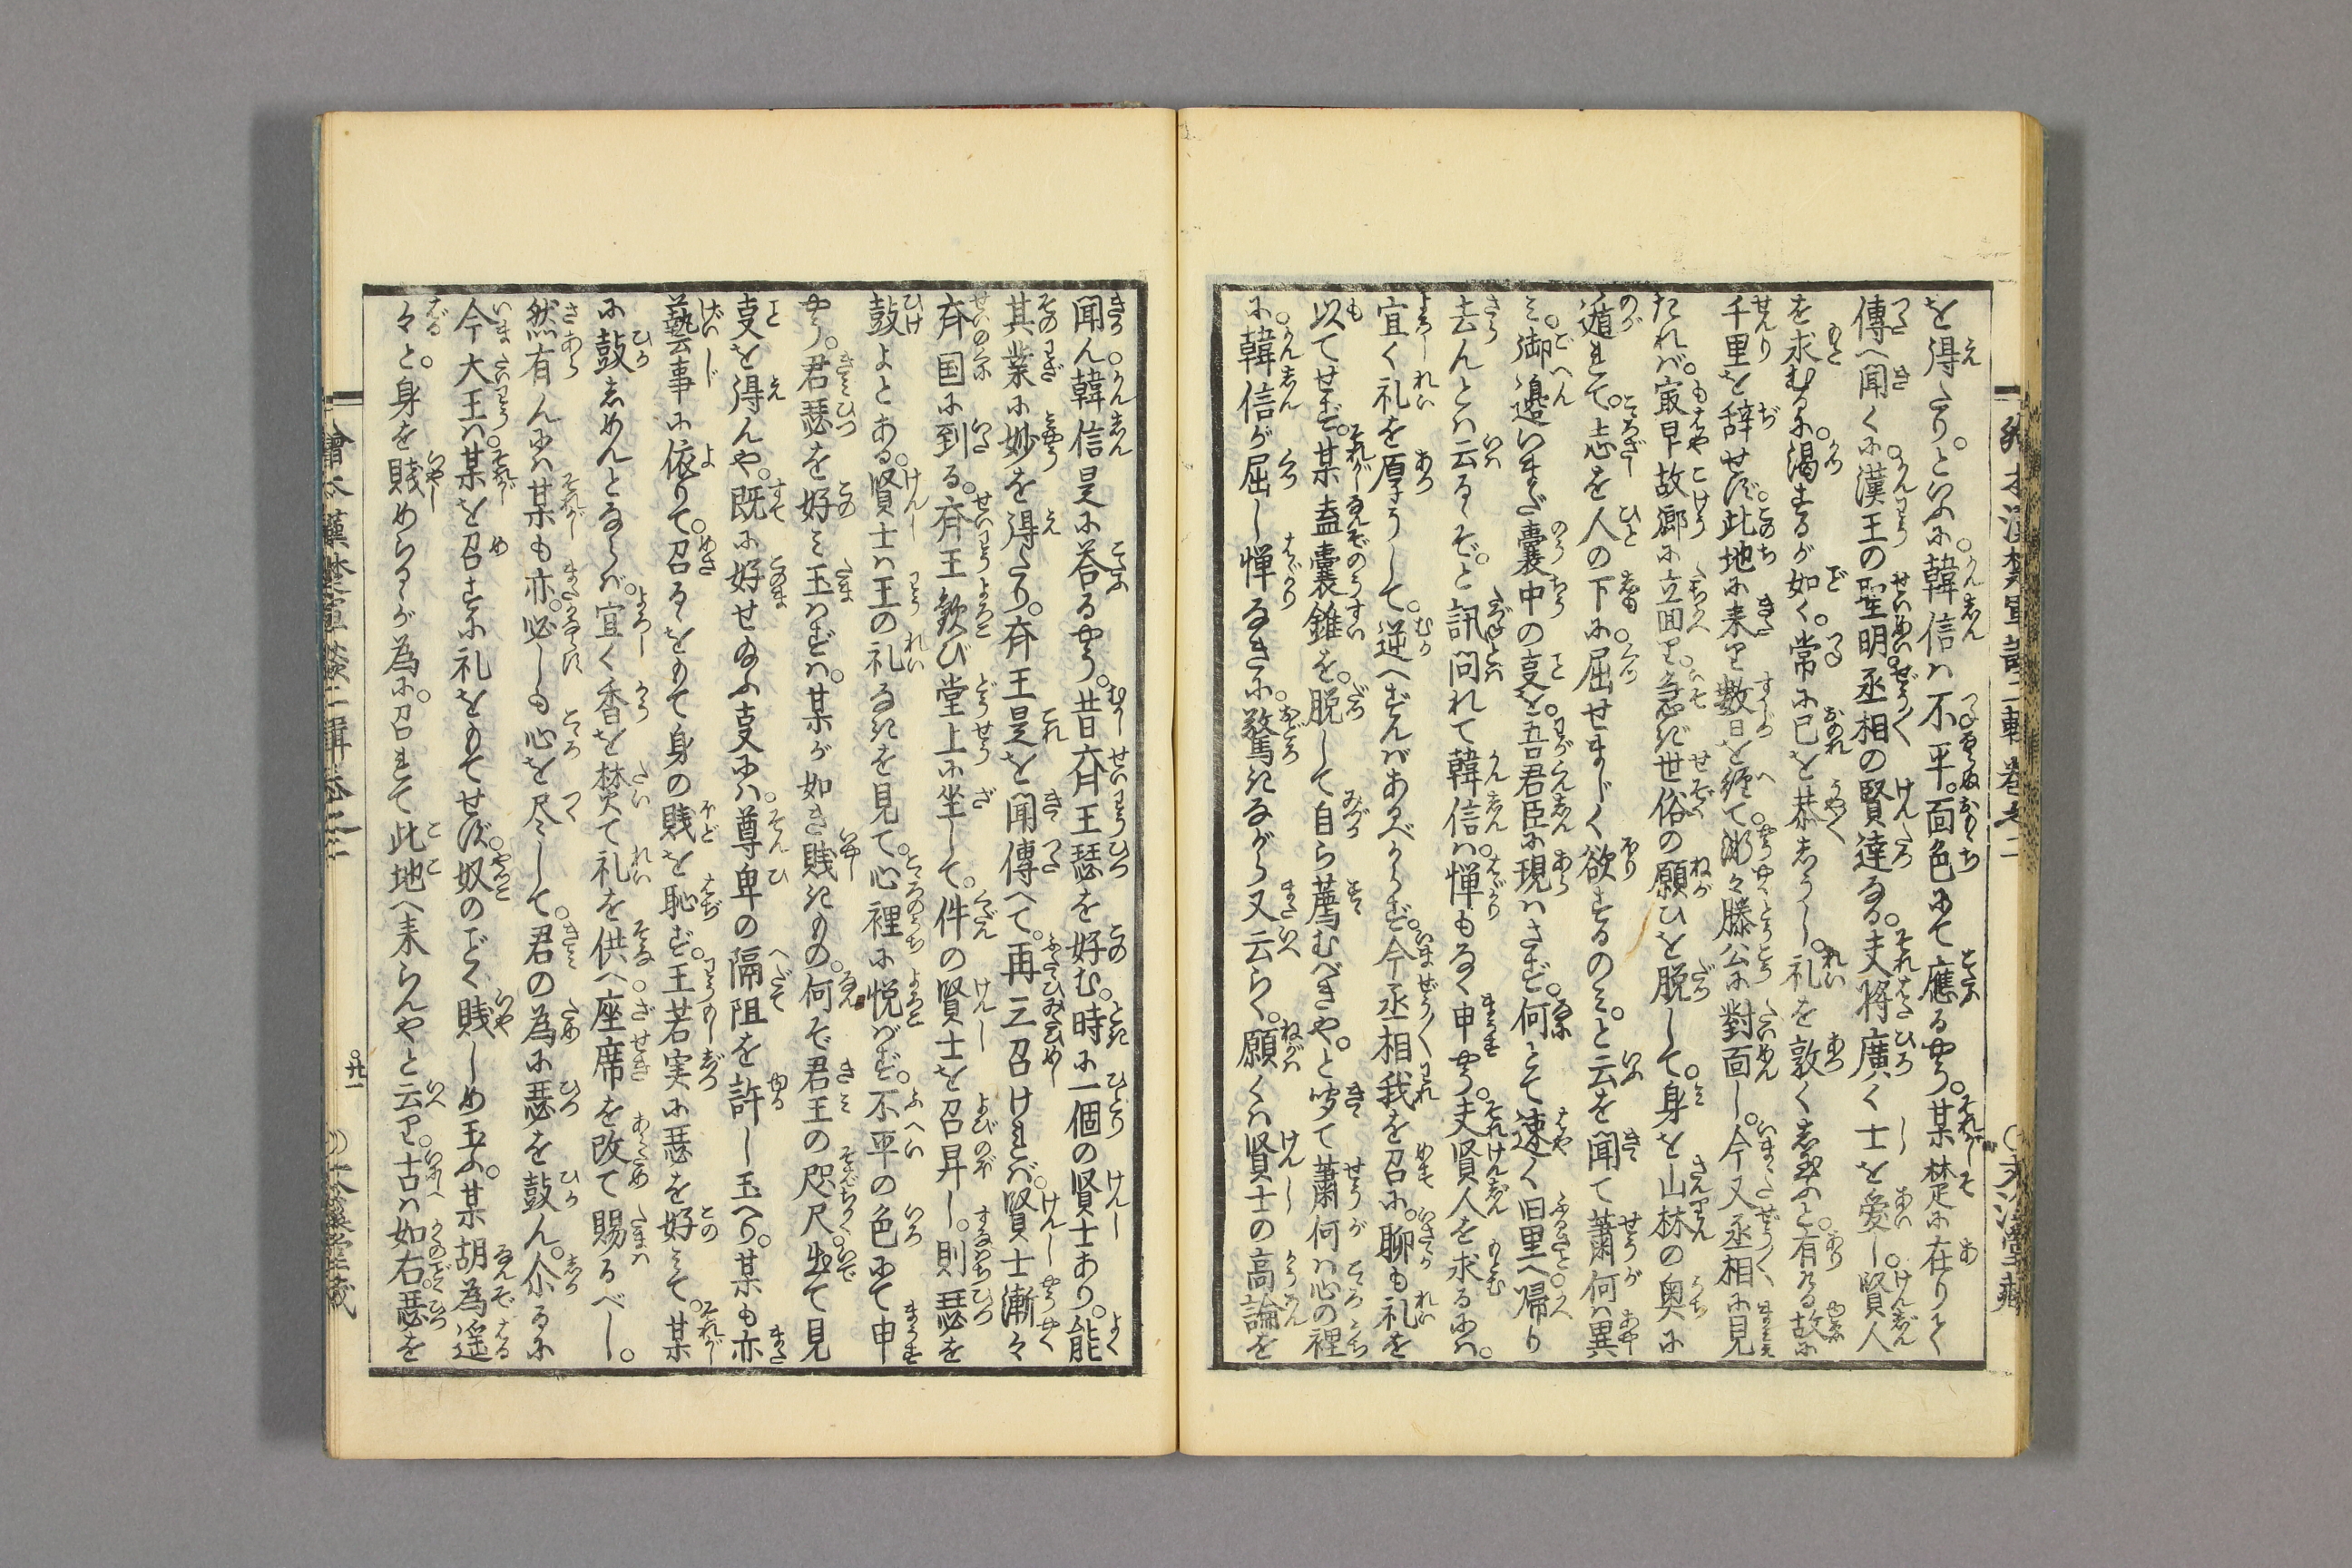 を得たり。といふに韓信は不平。面色にて應る様。某楚に在りて
傳へ聞くに漢王の聖明。丞相の賢達なる。夫将廣く士を愛し。賢人
を求むるに渇するが如く。常に己を恭しうし。礼を敦くし給ふと。有る故に
千里を辞せず。此地に来り数日を經て。漸々滕公に對面し。今又丞相に見
たれば。最早故郷に立回り。急ぎ世俗の願ひを脱して。身を山林の奥に
遁れて。志を人の下に屈せまじく欲するのみ。と云を聞て蕭何は異
み。御邊いまだ嚢中の叓を。吾君臣に現はさず。何とて速く旧里へ帰り
去んとは云るぞ。と訊問れて韓信は。憚もなく申様。夫賢人を求るには。
宜く礼を厚うして。逆へずんばあるべからず。今丞相我を召に。聊も礼を
以てせず。某盍嚢錐を。脱して自ら薦むべきや。と咲て蕭何は心の裡
に。韓信が屈し憚なきに。驚きながら又云らく。願くは賢士の高論を
聞ん。韓信是に荅る様。昔斉王瑟を好む。時に一個の賢士あり。能
其業に妙を得たり。斉王是を聞傳へて。再三召ければ。賢士漸々
斉国に到る。斉王歓び堂上に坐して。件の賢士を召昇し。則瑟を
鼓よとある。賢士は王の礼なきを見て。心裡に悦ばず。不平の色にて申
様。君瑟を好み玉はずは。某が如き賎きもの。何ぞ君王の咫尺。出て見
叓を得んや。既に好せ給ふ叓には。尊卑の隔阻を許し玉へり。某も亦
藝事に依りて。召るゝをもて身の賎を恥ず。王若実に瑟を好みて。某
に鼓しめんとならば。宜く香を焚て礼を供へ。座席を改て賜るべし。
然有んには某も亦。必しも心を尽して。君の為に瑟を鼓ん。尒るに
今大王は。某を召すに礼をもてせず。奴のごく賎しめ玉ふ。某胡為遥
々と。身を賎めらるゝが為に。召れて此地へ来らんやと云り。古は如右。瑟を
廿一